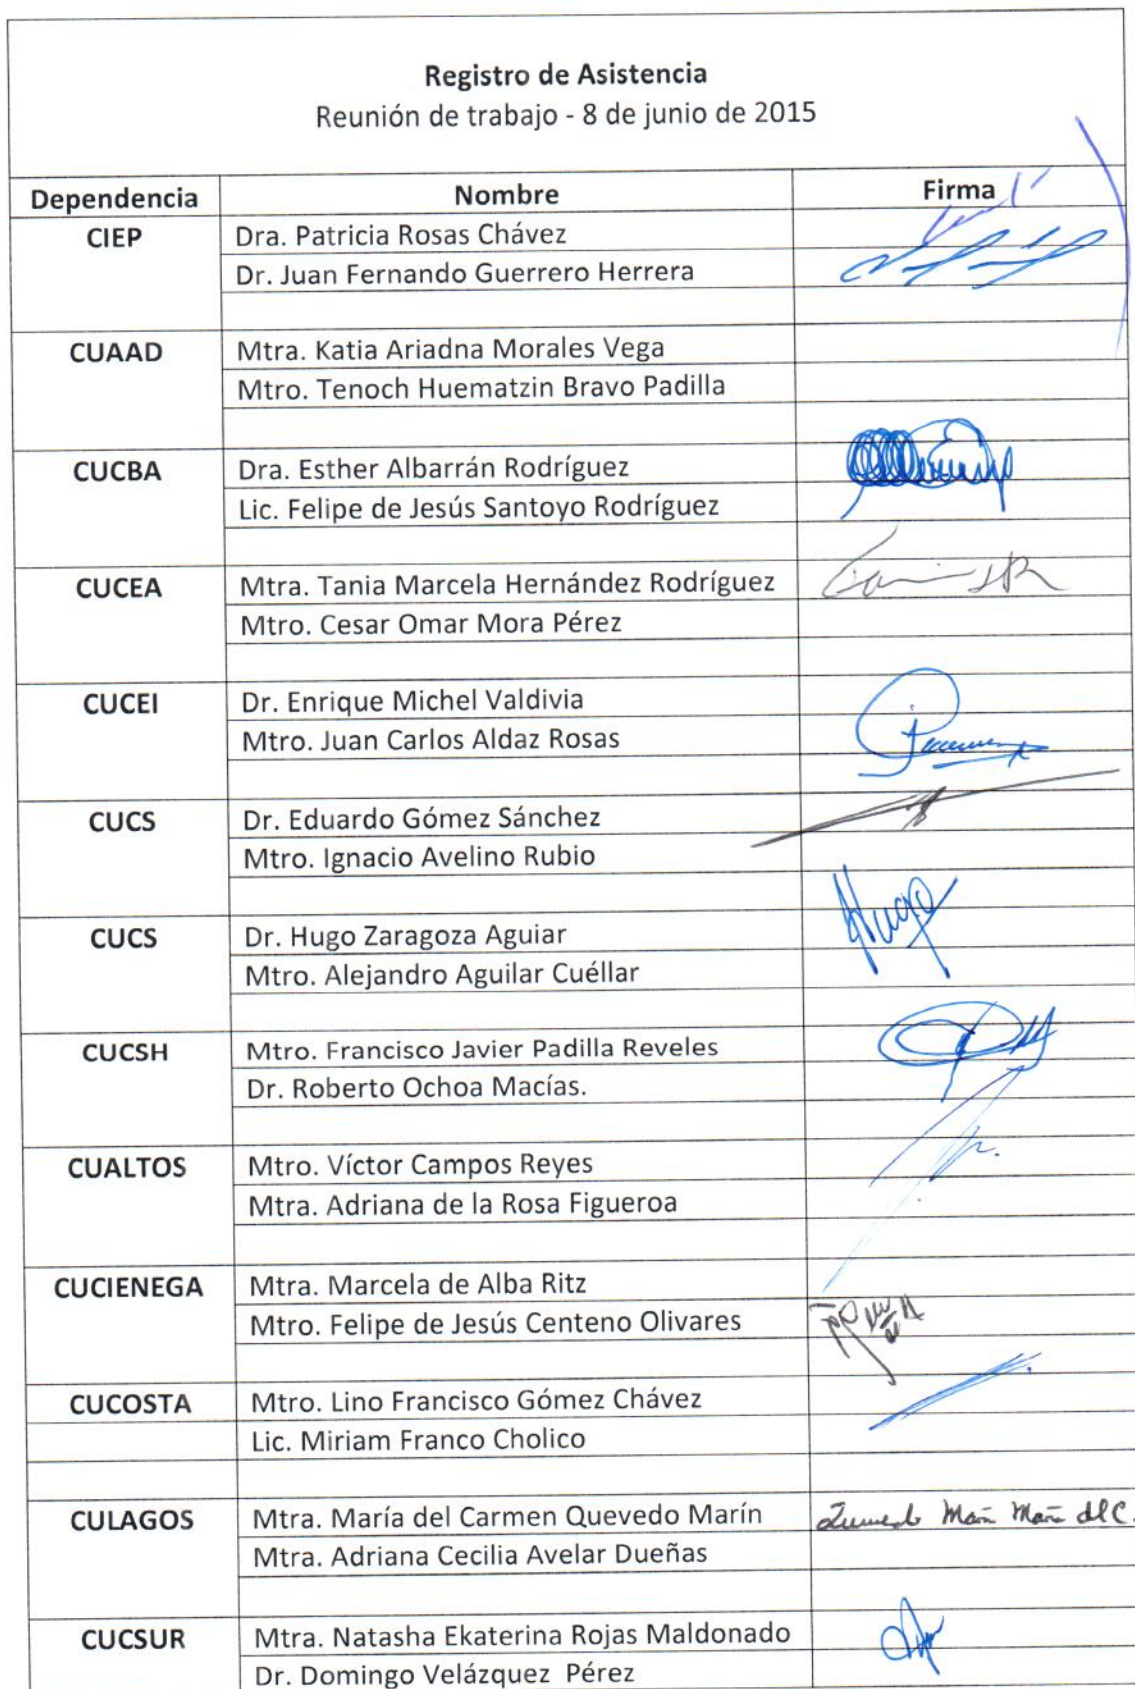 Registro de Asistencia
Reunión de trabajo - 8 de junio de 2015
Dependencia Nombre Firma
CIEP Dra. Patricia Rosas Chávez
Dr. Juan Fernando Guerrero Herrera
CUAAD Mtra. Katia Ariadna Morales Vega
Mtro. Tenoch Huematzin Bravo Padilla
CUCBA Dra. Esther Albarrán Rodríguez
Lic. Felipe de Jesús Santoyo Rodríguez
CUCEA Mtra. Tania Marcela Hernández Rodríguez
Mtro. Cesar Omar Mora Pérez
CUCEI Dr. Enrique Michel Valdivia
Mtro. Juan Carlos Aldaz Rosas
CUCS Dr. Eduardo Gómez Sánchez
Mtro. Ignacio Avelino Rubio
CUCS Dr. Hugo Zaragoza Aguiar Hugo
Mtro. Alejandro Aguilar Cuéllar
CUCSH Mtro. Francisco Javier Padilla Reveles
Dr. Roberto Ochoa Macías.
CUALTOS Mtro. Víctor Campos Reyes
Mtra. Adriana de la Rosa Figueroa
CUCIENEGA Mtra. Marcela de Alba Ritz
Mtro. Felipe de Jesús Centeno Olivares
CUCOSTA Mtro. Lino Francisco Gómez Chávez
Lic. Miriam Franco Cholico
CULAGOS Mtra. María del Carmen Quevedo Marín
Mtra. Adriana Cecilia Avelar Dueñas
CUCSUR Mtra. Natasha Ekaterina Rojas Maldonado
Dr. Domingo Velázquez Pérez